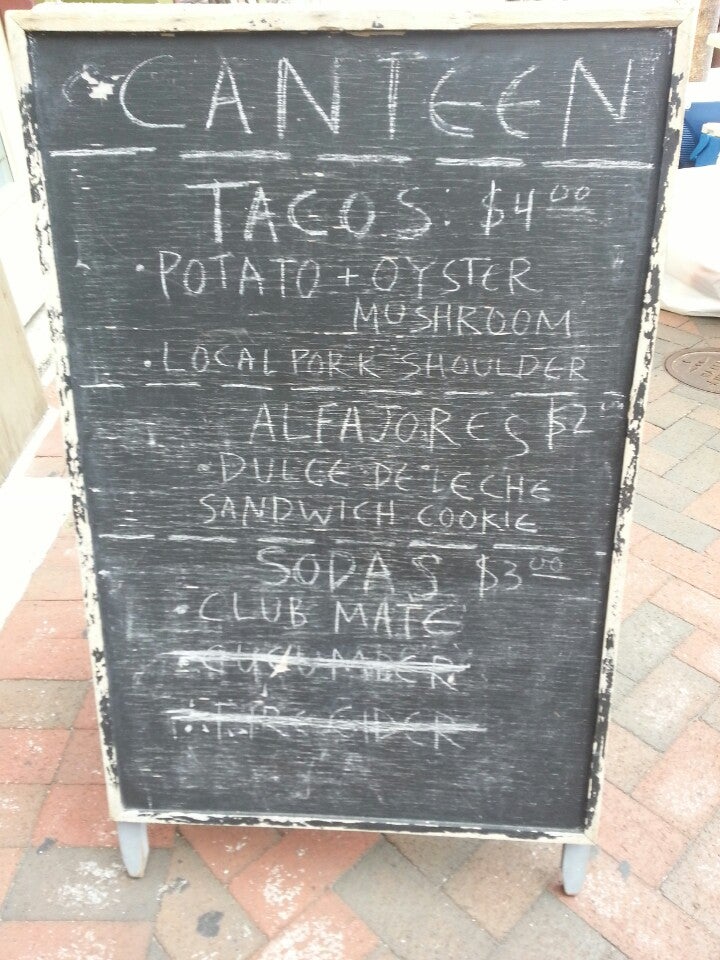 CANTEEN
TACOS: $4.00
• POTATO + OYSTER
MUSHROOM
• LOCAL PORK SHOULDER
ALFAJORES $2
• DULCE DE LECHE
SANDWICH COOKIE
SODAS $3.00
• CLUB MATE
• CUCUMBER
• FIRE CIDER